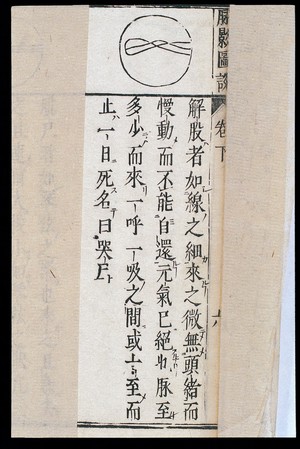 脉影圖說
卷下
六
解股者如線之細來之微無頭緒而
慢動而不能自還元氣已絕也脉至
多少而來一呼一吸之間或上至而
止一日死名曰哭尸